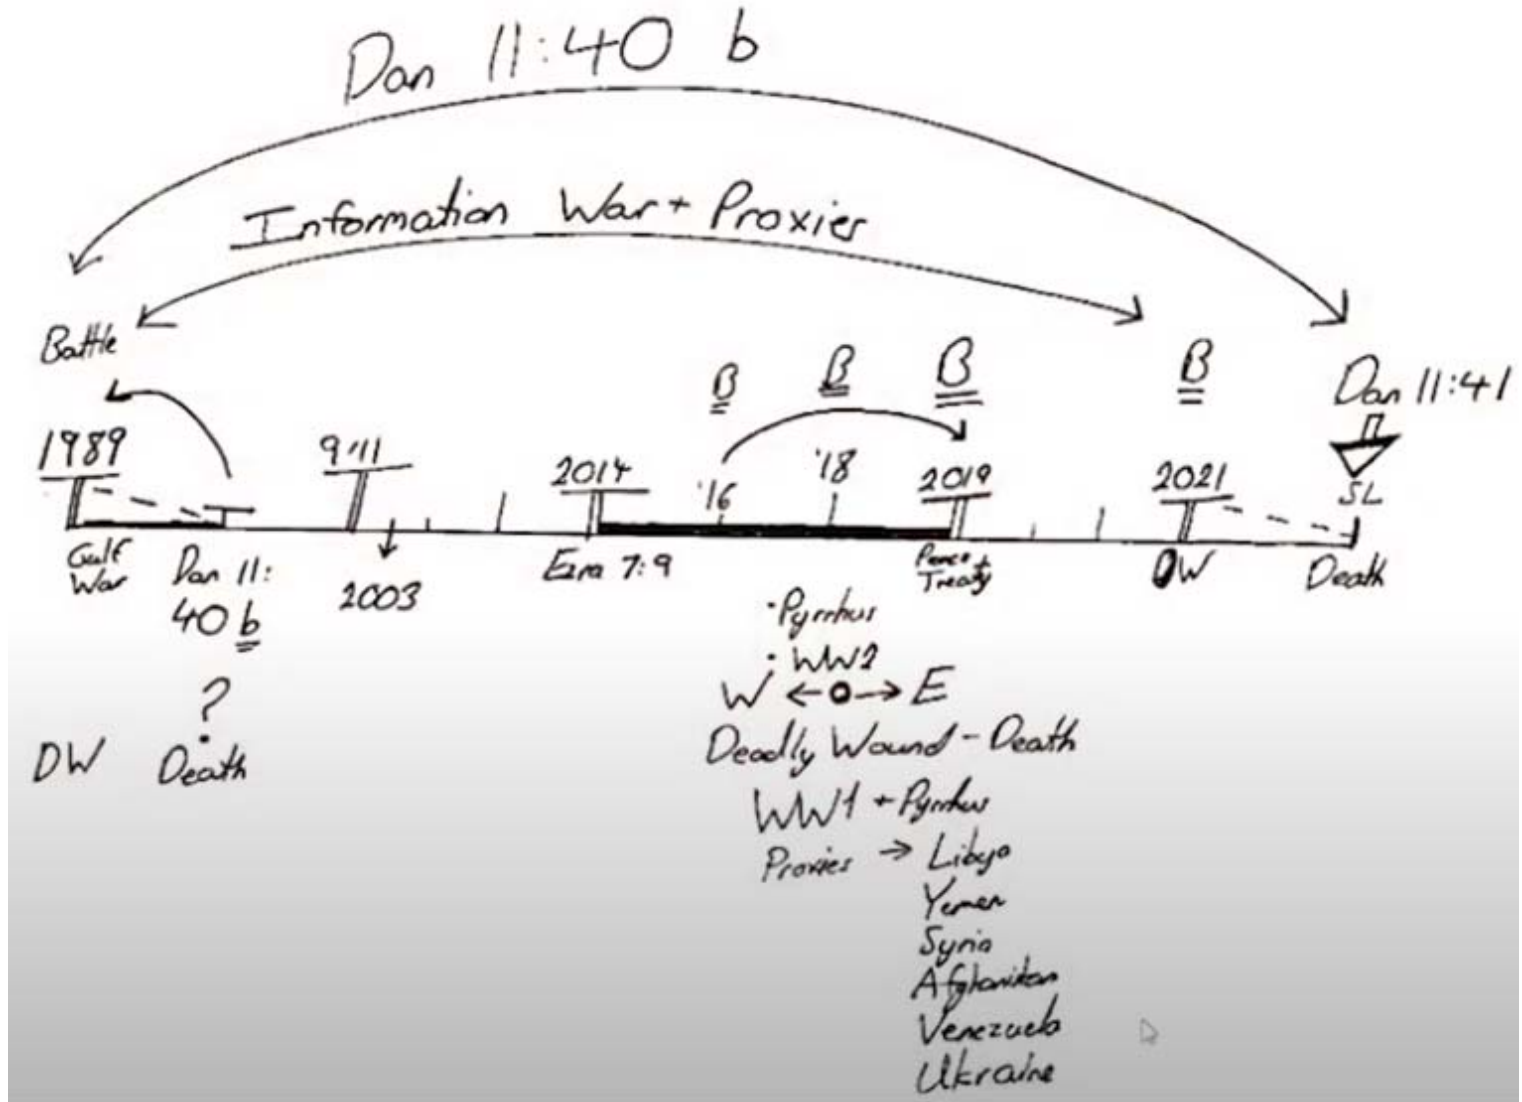 Dan 11:40 b
Information War + Proxies
Battle
B B B B
Dan 11:41
1989 9/11 2014 '16 '18 2019 2021 SL
Gulf War
Dan 11:
40 b
2003
Ezra 7:9
Treaty
DW
Death
?
DW Death
• Pyrrhus
• WW2
W ← o → E
Deadly Wound - Death
WW1 + Pyrrhus
Proxies → Libya
Yemen
Syria
Afghanistan
Venezuela
Ukraine